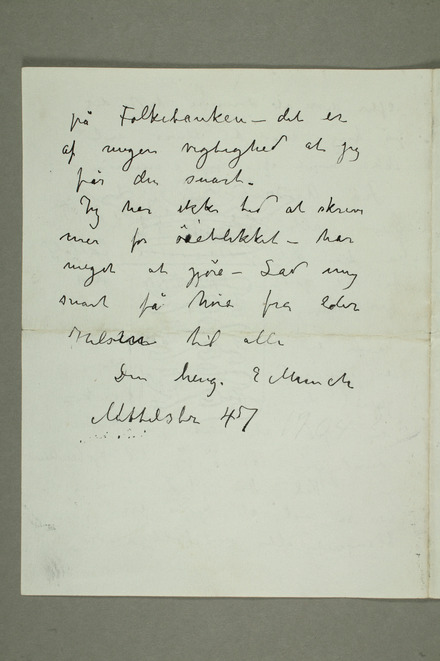 på Folkebanken – det er
af megen vigtighed at jeg
får den snart.
Jeg har ikke tid at skrive
mer for öieblikket – har
meget at gjöre – Lad mig
snart få höre fra eder
Hilsen til alle
Din heng. E Munch
Mittelstr 45/